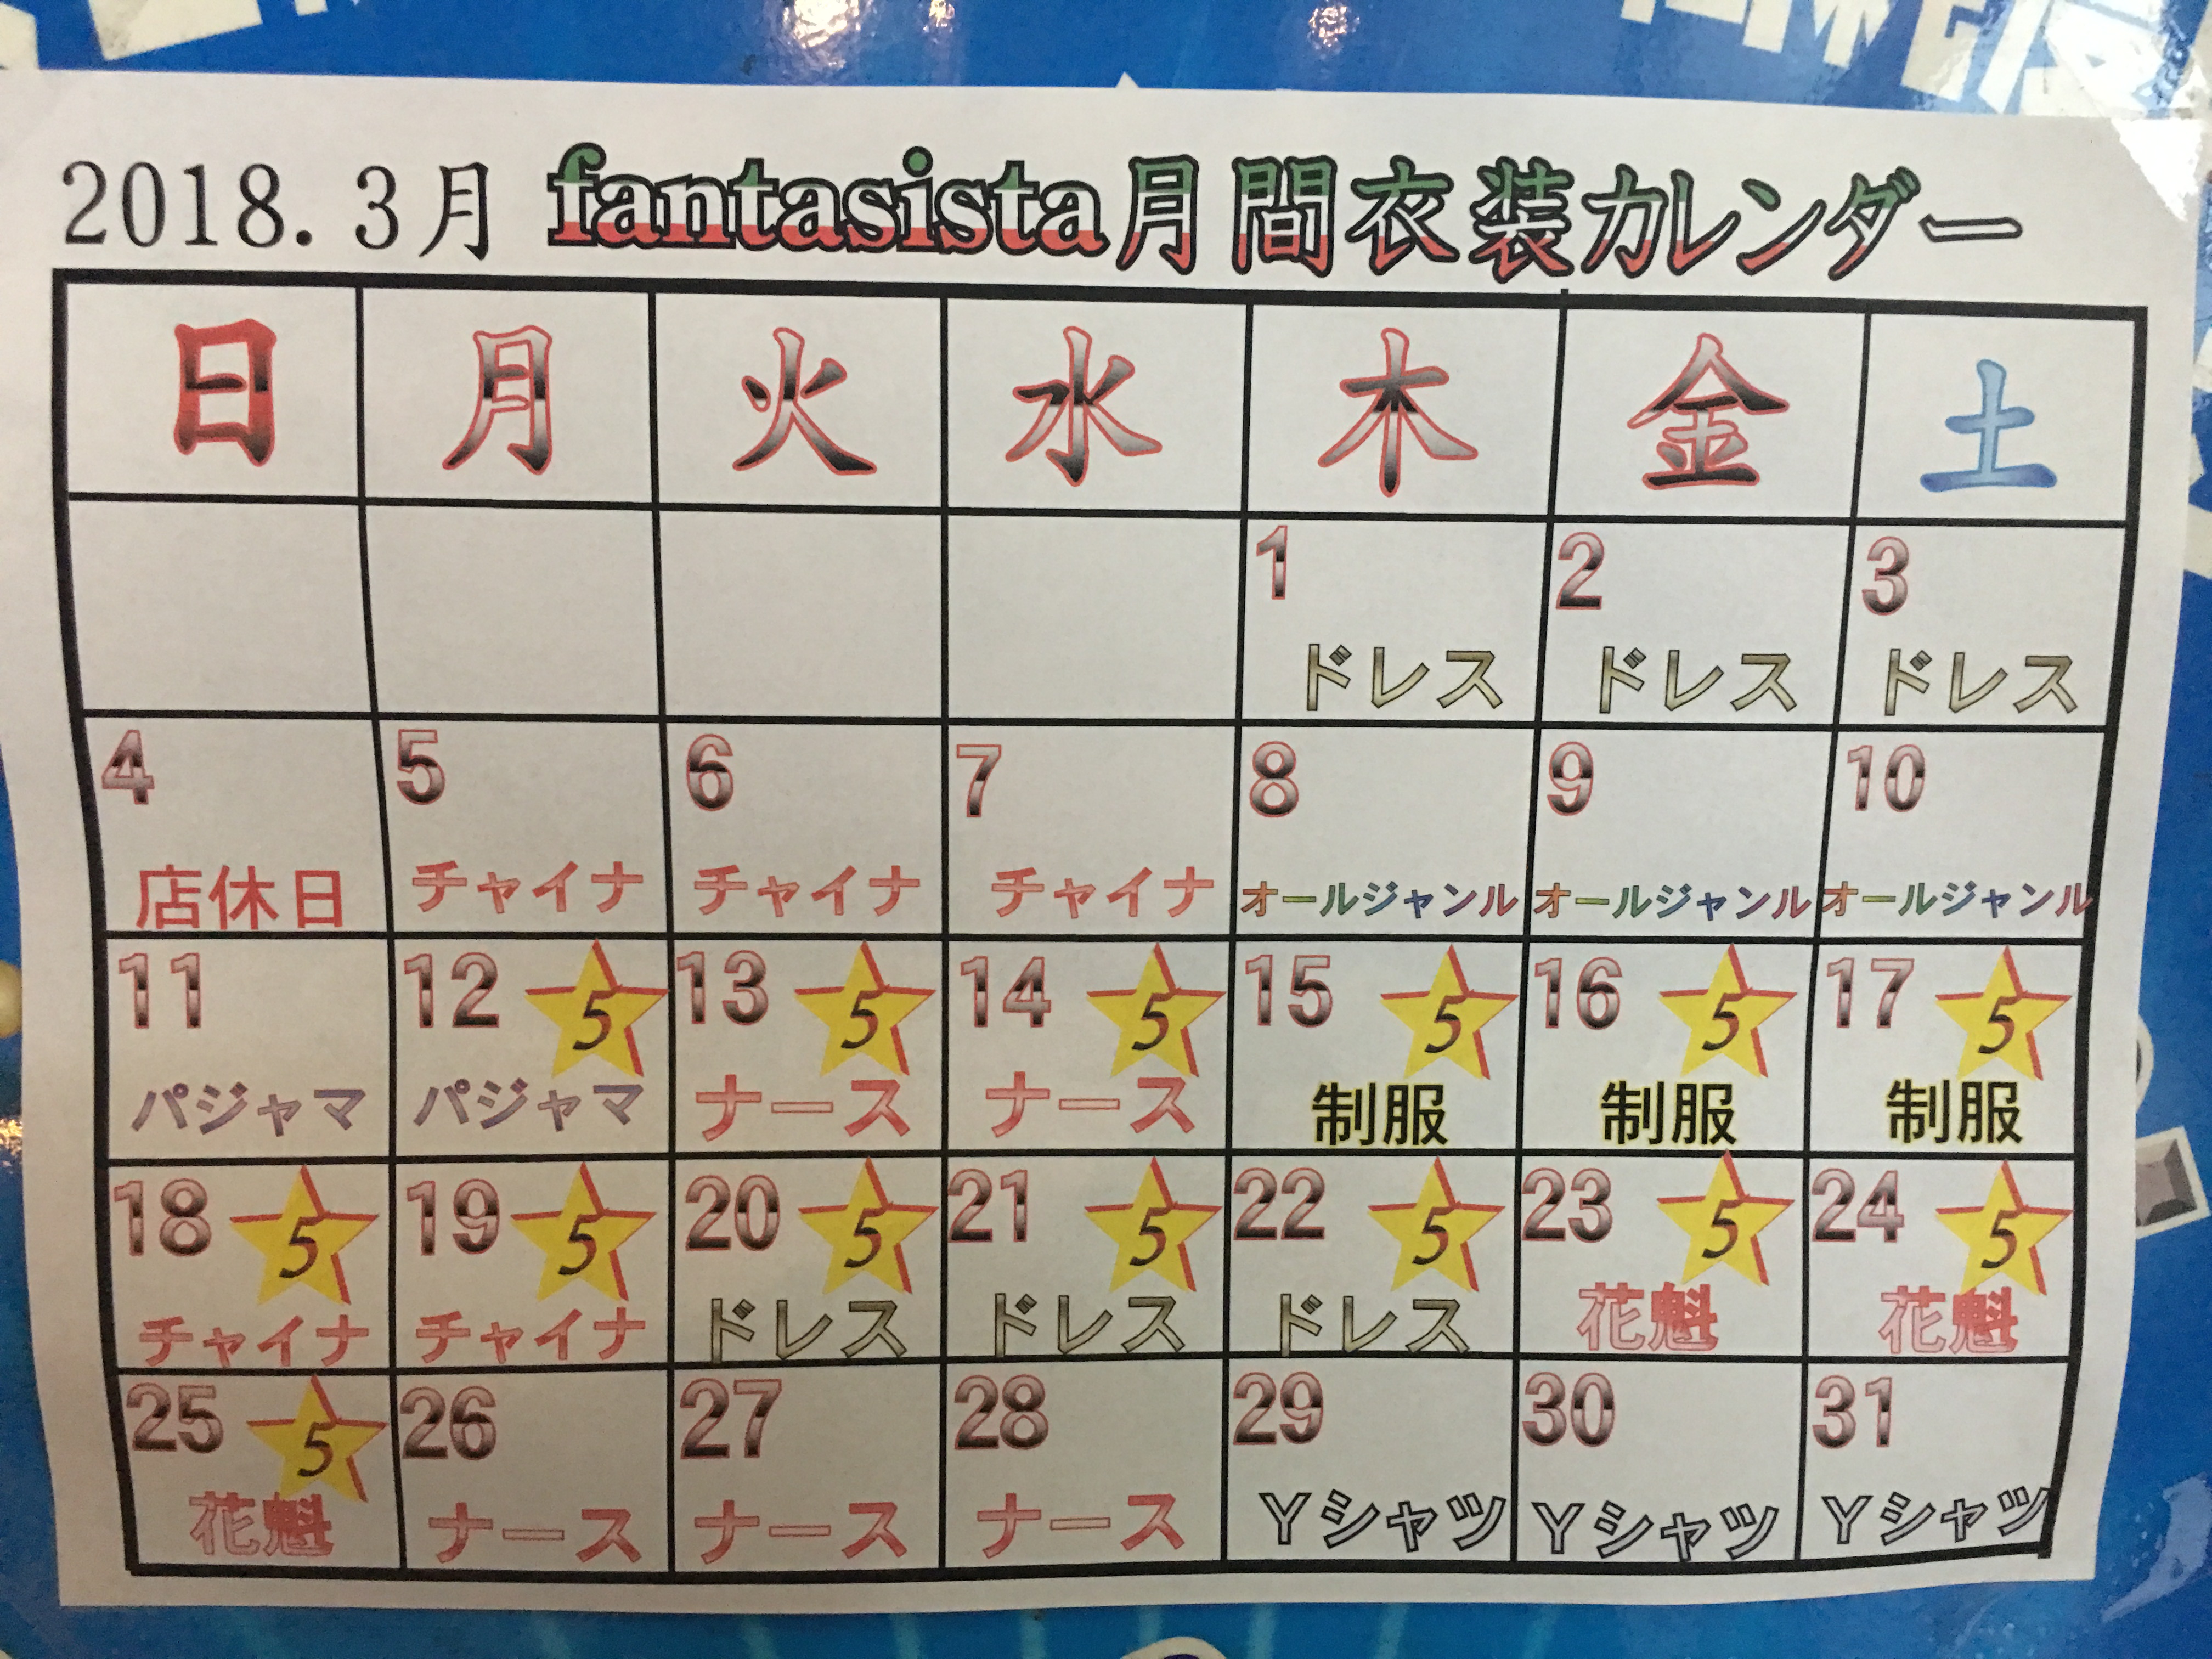 2018.3月 fantasista月間衣装カレンダー
日 月 火 水 木 金 土
1 2 3
ドレス ドレス ドレス
4 5 6 7 8 9 10
店休日 チャイナ チャイナ チャイナ オールジャンル オールジャンル オールジャンル
11 12 5 13 5 14 5 15 5 16 5 17 5
パジャマ パジャマ ナース ナース 制服 制服 制服
18 5 19 5 20 5 21 5 22 5 23 5 24 5
チャイナ チャイナ ドレス ドレス ドレス 花魁 花魁
25 5 26 27 28 29 30 31
花魁 ナース ナース ナース Yシャツ Yシャツ Yシャツ